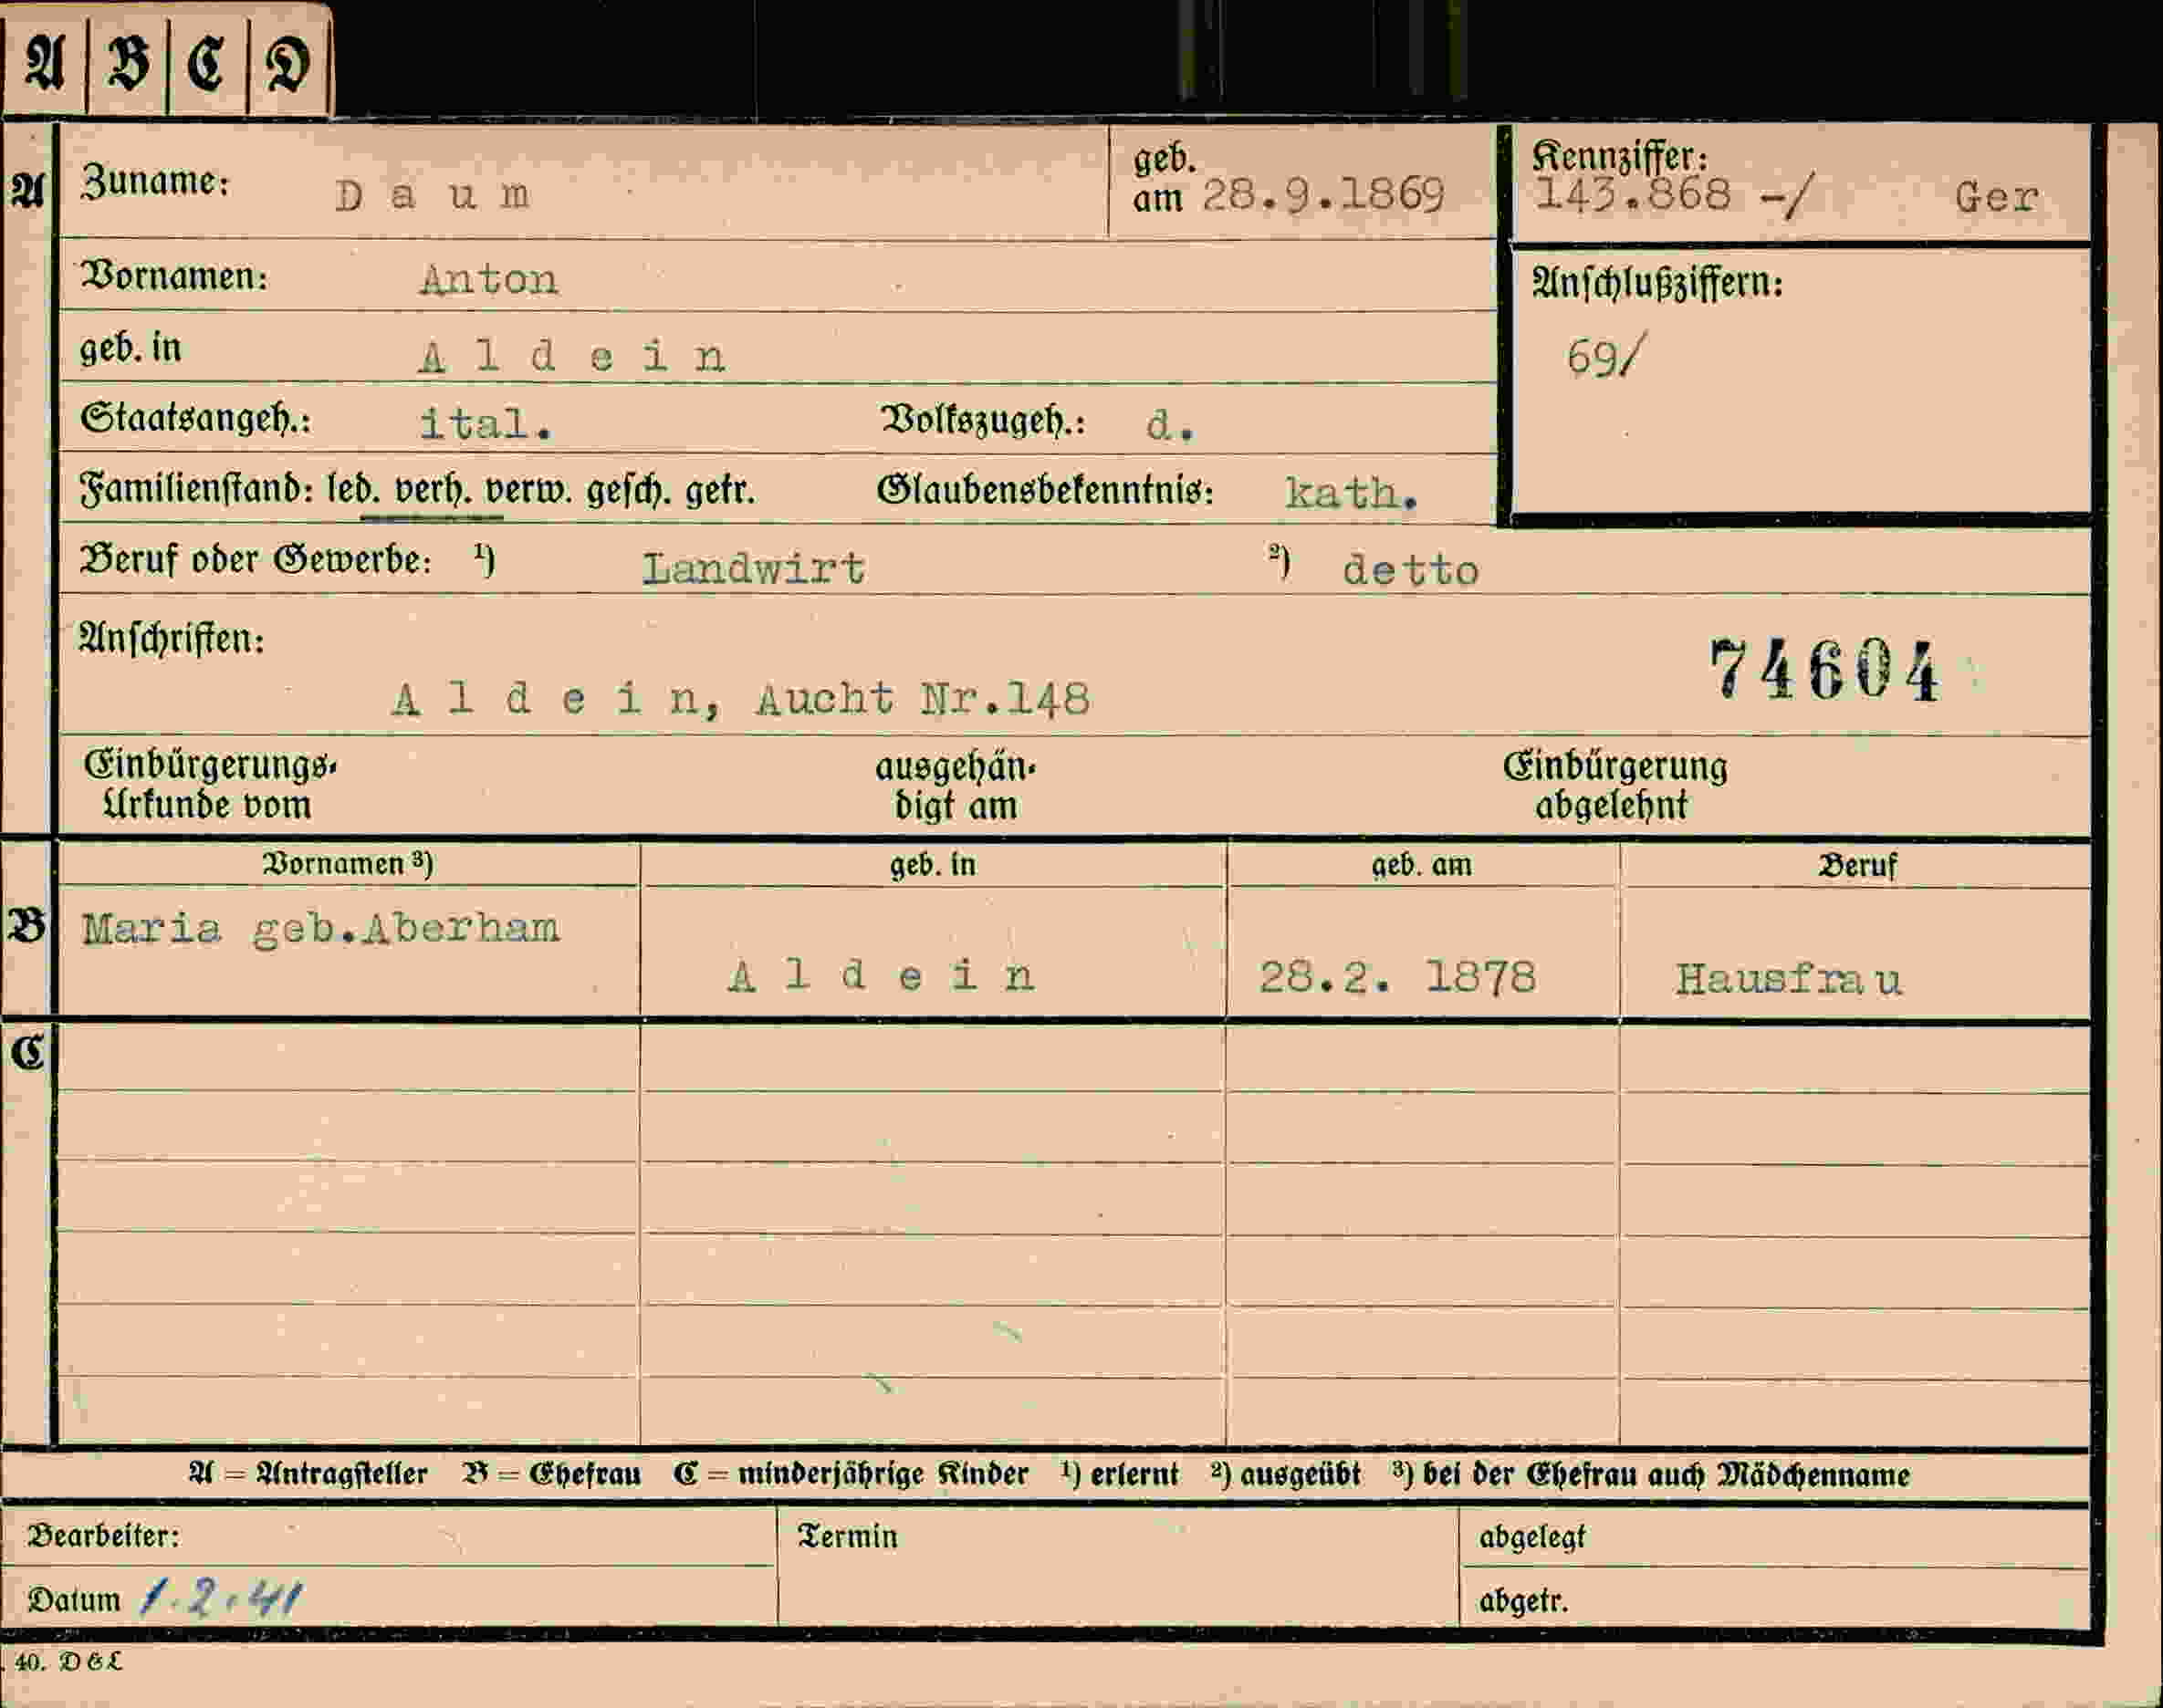 A B C D
A Zuname: D a u m geb. am 28.9.1869 Kennziffer: 143.868 -/ Ger
Vornamen: Anton Anschlußziffern:
geb. in A l d e i n 69/
Staatsangeh.: ital. Volkszugeh.: d.
Familienstand: led. verh. verw. gesch. getr. Glaubensbekenntnis: kath.
Beruf oder Gewerbe: ¹) Landwirt ²) detto
Anschriften:
A l d e i n, Aucht Nr.148 74604
Einbürgerungs- ausgehän- Einbürgerung
Urkunde vom digt am abgelehnt
Vornamen ³) geb. in geb. am Beruf
B Maria geb.Aberham
A l d e i n 28.2. 1878 Hausfrau
C
A = Antragsteller B = Ehefrau C = minderjährige Kinder ¹) erlernt ²) ausgeübt ³) bei der Ehefrau auch Mädchenname
Bearbeiter: Termin abgelegt
Datum 1.2.41 abgetr.
40. D G L